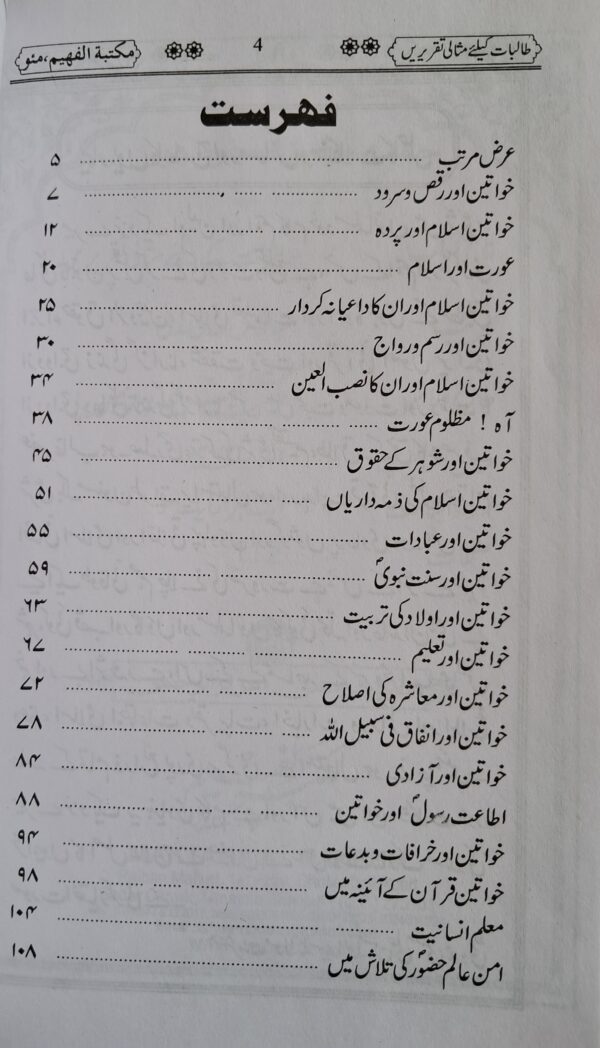 طالبات کیلئے مثالی تقریریں 4 مکتبۃ الفہیم، مئو
فہرست
عرض مرتب ۵
خواتین اور رقص و سرود ۷
خواتین اسلام اور پردہ ۱۲
عورت اور اسلام ۲۰
خواتین اسلام اور ان کا داعیانہ کردار ۲۵
خواتین اور رسم و رواج ۳۰
خواتین اسلام اور ان کا نصب العین ۳۴
آہ ! مظلوم عورت ۳۸
خواتین اور شوہر کے حقوق ۴۵
خواتین اسلام کی ذمہ داریاں ۵۱
خواتین اور عبادات ۵۵
خواتین اور سنت نبویؐ ۵۹
خواتین اور اولاد کی تربیت ۶۳
خواتین اور تعلیم ۶۷
خواتین اور معاشرہ کی اصلاح ۷۲
خواتین اور انفاق فی سبیل اللہ ۷۸
خواتین اور آزادی ۸۴
اطاعت رسولؐ اور خواتین ۸۸
خواتین اور خرافات و بدعات ۹۴
خواتین قرآن کے آئینہ میں ۹۸
معلم انسانیت ۱۰۴
امن عالم حضورؐ کی تلاش میں ۱۰۸